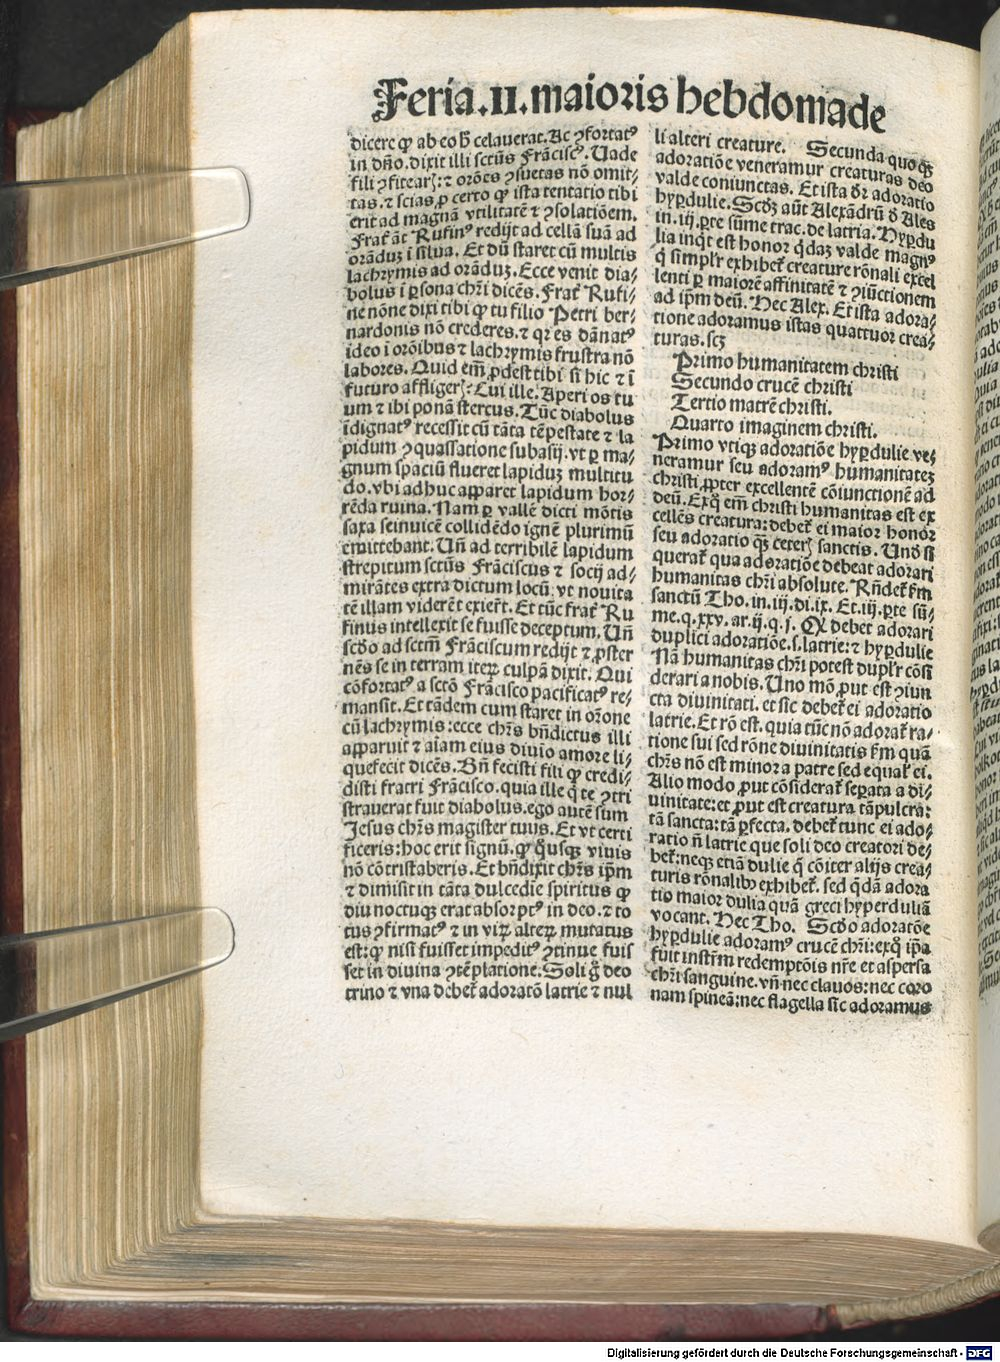 Feria.II.maioris hebdomade
dicere ꝙ ab eo hͦ celauerat. Ac ꝯfortatꝰ
in dño. dixit illi sctūs Frāciscꝰ. Uade
fili ꝯfitearꝭ: ⁊ orões ꝯsuetas nō omit⸗
tas. ⁊ scias ꝓ certo ꝙ ista tentatio tibi
erit ad magnā vtilitatē ⁊ ꝯsolatiōem.
Frat̄ āt Rufinꝰ redijt ad cellā suā ad
orāduꝫ ī silua. Et dū staret cū multis
lachrymis ad orāduꝫ. Ecce venit dia⸗
bolus ī ꝑsona chr̄i dicēs. Frat̄ Rufi⸗
ne nōne dixi tibi ꝙ tu filio Petri ber⸗
nardonis nō crederes. ⁊ qr es dānatꝰ
ideo ī orōibus ⁊ lachrymis frustra nō
labores. Quid em̄ ꝓdest tibi si hic ⁊ ī
futuro affligerꝭ: Cui ille. Aperi os tu
um ⁊ ibi ponā stercus. Tūc diabolus
īdignatꝰ recessit cū tāta tēpestate ⁊ la
pidum ꝯquassatione subasij. vt ꝑ ma⸗
gnum spaciū flueret lapiduꝫ multitu
do. vbi adhuc apparet lapidum hor⸗
rēda ruina. Nam ꝑ vallē dicti mōtis
saxa seinuicē collidēdo ignē plurimū
emittebant. Uñ ad terribilē lapidum
strepitum sctūs Frāciscus ⁊ socij ad⸗
mirātes extra dictum locū: vt nouita
tē illam viderēt exiert̄. Et tūc frat̄ Ru
finus intellexit se fuisse deceptum. Uñ
scďo ad sctm̄ Frāciscum redijt ⁊ ꝓster
nēs se in terram iteꝝ culpā dixit. Qui
cōfortatꝰ a sctō Frācisco pacificatꝰ re⸗
mansit. Et tādem cum staret in orōne
cū lachrymis: ecce chr̄s bñdictus illi
apparuit ⁊ aīam eius diuīo amore li⸗
quefecit dicēs. Bñ fecisti fili ꝙ credi⸗
disti fratri Frācisco. quia ille q̄ te ꝯtri
strauerat fuit diabolus. ego autē sum
Jesus chr̄s magister tuus. Et vt certi
ficeris: hoc erit signū. ꝙ q̊usqꝫ viuis
nō cōtristaberis. Et bñdixit chr̄s ip̄m
⁊ dimisit in tāta dulcedīe spiritus ꝙ
diu noctuqꝫ erat absorptꝰ in deo. ⁊ to
tus ꝯfirmatꝰ ⁊ in viꝝ alteꝝ mutatus
est: ꝙ nisi fuisset impeditꝰ ꝯtinue fuis
set in diuina ꝯtēplatione: Soli g̊ deo
trino ⁊ vna debet̄ adoratō latrie ⁊ nul
li alteri creature. Secunda quoqꝫ
adoratiōe veneramur creaturas deo
valde coniunctas. Et ista dr̄ adoratio
hyꝑdulie. Scďꝫ aūt Alexādrū ď Ales
in. iij. ꝑte sūme trac. de latria. Hyꝑdu
lia inq̇t est honor q̇daꝫ valde magnꝰ
q̇ simplr̄ exhibet̄ creature rōnali excel
lenti ꝑ maiorē affinitatē ⁊ ꝯiūctionem
ad ip̄m deū. Hec Alex. Et ista adora⸗
tione adoramus istas quattuor crea⸗
turas. scꝫ
Primo humanitatem christi
Secundo crucē christi
Tertio matrē christi.
Quarto imaginem christi.
Primo vtiqꝫ adoratiōe hyꝑdulie ve⸗
neramur seu adoramꝰ humanitateꝫ
christi ꝓpter excellentē cōiunctionē ad
deū. Exq̊ em̄ christi humanitas est ex
cellēs creatura: debet̄ ei maior honor
seu adoratio q̄ꝫ ceterꝭ sanctis. Unď si
querat̄ qua adoratiōe debeat adorari
humanitas chr̄i absolute. Rn̄det̄ fm̄
sanctū Tho. in. iij. di. ix. Et. iij. ꝑte sū⸗
me. q. xxv. ar. ij. q. j. Qꝫ debet adorari
duplici adoratiōe. s. latrie: ⁊ hyꝑdulie
Nā humanitas chr̄i potest duplr̄ cōsi
derari a nobis. Uno mō ꝓut est ꝯiun
cta diuinitati. et sic debet̄ ei adoratio
latrie. Et rō est. quia tūc nō adorat̄ ra⸗
tione sui sed rōne diuinitatis fm̄ quā
chr̄s nō est minor a patre sed equal̄ ei.
Alio modo ꝓut cōsiderat̄ seꝑata a di⸗
uinitate: et ꝓut est creatura tā pulcra:
tā sancta: tā ꝑfecta. debet̄ tunc ei ado⸗
ratio n̄ latrie que soli deo creatori de⸗
bet̄: neqꝫ etiā dulie q̄ cōiter alijs crea⸗
turis rōnalibꝰ exhibet̄. sed q̄dā adora
tio maior dulia quā greci hyperduliā
vocant. Hec Tho. Scďo adoratōe
hyꝑdulie adoramꝰ crucē chr̄i: exq̊ ip̄a
fuit instrm̄ redemptōis nr̄e et aspersa
chr̄i sanguine. vñ nec clauos: nec coro
nam spineā: nec flagella sic adoramus
Digitalisierung gefördert durch die Deutsche Forschungsgemeinschaft - DFG